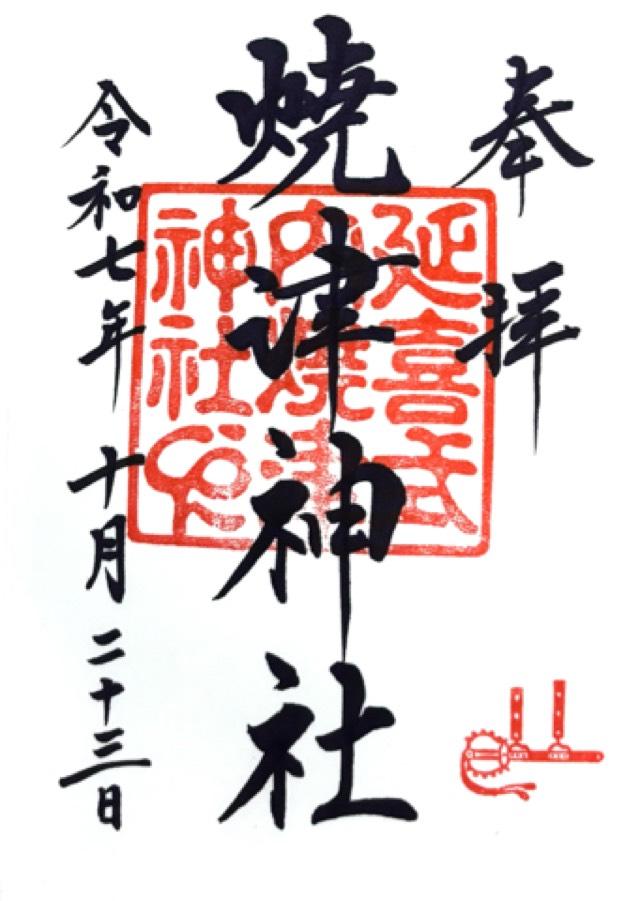 奉拝
延喜式
内焼津
神社印
燒津神社
令和七年 十月 二十三日